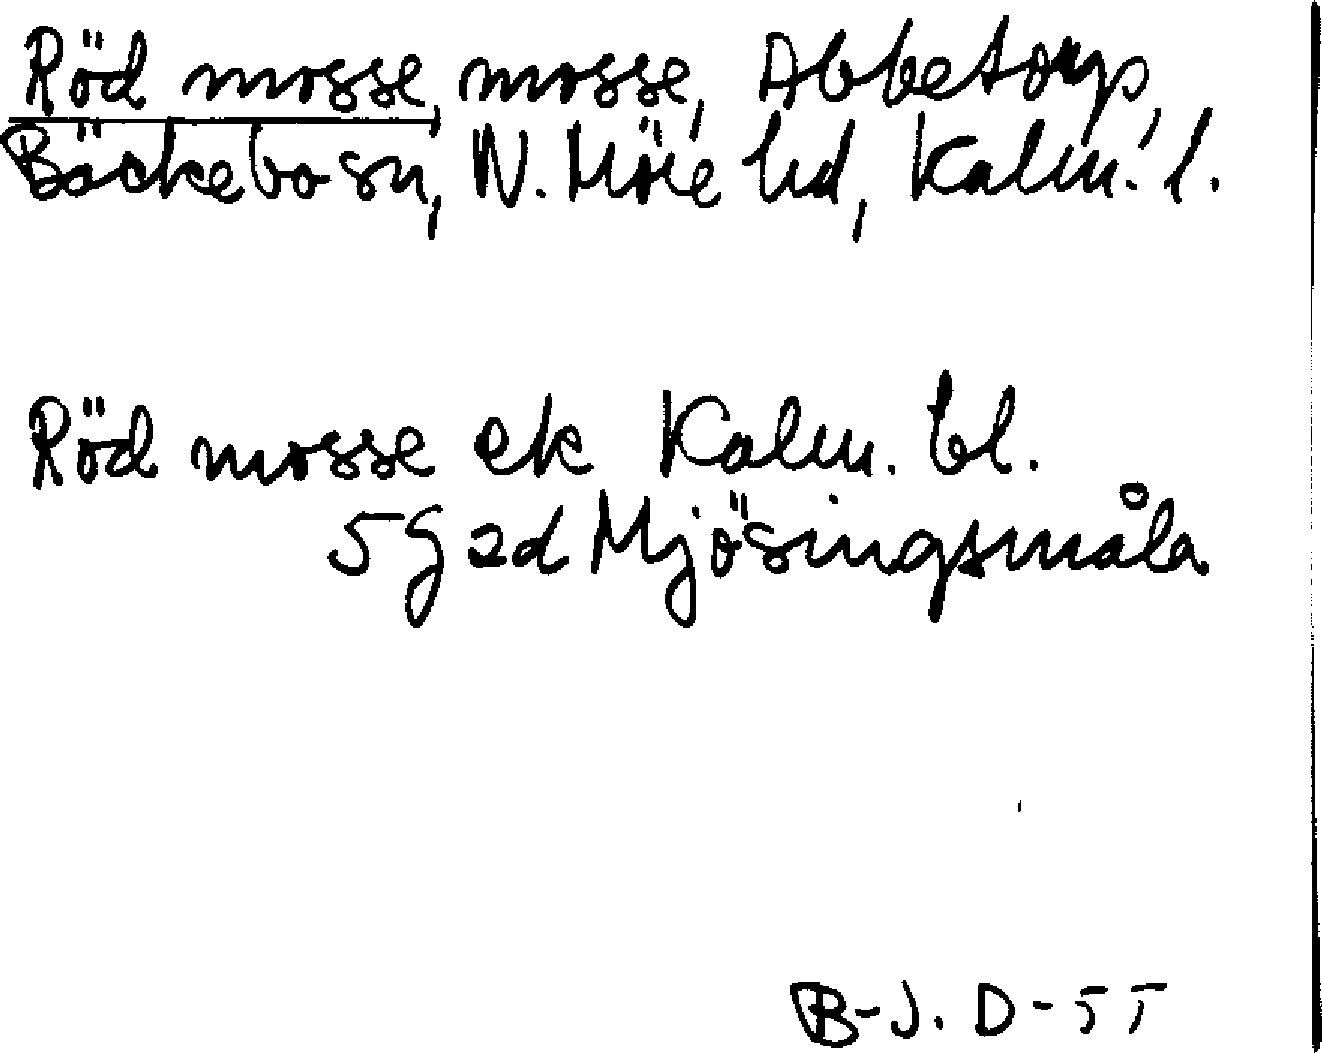 Röd mosse, mosse, Abbetorp,
Bäckebo sn, N. Möre hd, Kalm. l.
Röd mosse ek Kalm. bl.
5 g ad Mjösingsmåla
B-J. D-55